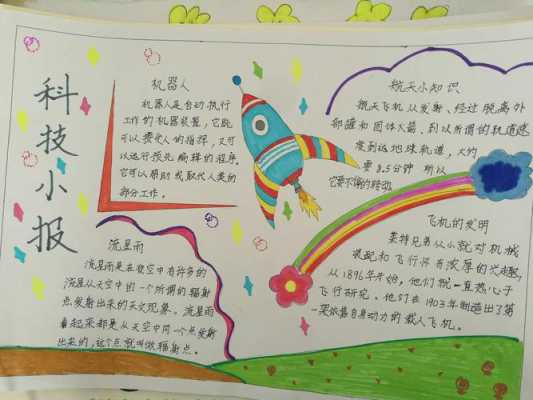 科技小报
机器人
机器人是自动执行
工作的机器装置，它既
可以接受人的指挥，又可
以运行预先编辑的程序。
它可以帮助或取代人类的
部分工作。
航天小知识
航天飞机从发射、经过脱离外
部罐和固体火箭，到以所谓的轨道速
度到达地球轨道，大约
要8.5分钟 所以
它要不停的转动
流星雨
流星雨是在夜空中有许多的
流星从天空中的一个所谓的辐射
点发射出来的天文现象。流星雨
看起来都是从天空中同一个点发射
出来的，这个点就叫做辐射点。
飞机的发明
莱特兄弟从小就对机械
装配和飞行怀有浓厚的兴趣，
从1896年开始，他们就一直热心于
飞行研究。他们在1903年制造出了第
一架依靠自身动力的载人飞机。